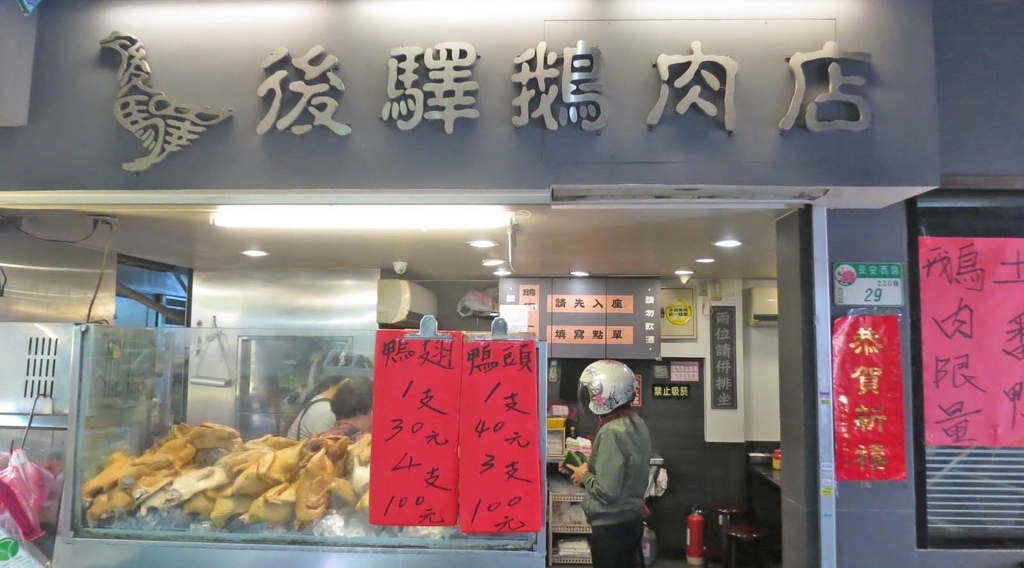 後驛鵝肉店
鴨翅
1支
30元
4支
100元
鴨頭
1支
40元
3支
100元
請先入座
填寫點單
請勿飲酒
兩位請併排坐
禁止吸菸
長安西路
220巷
29
恭賀新禧
鵝肉限量
土
鴨